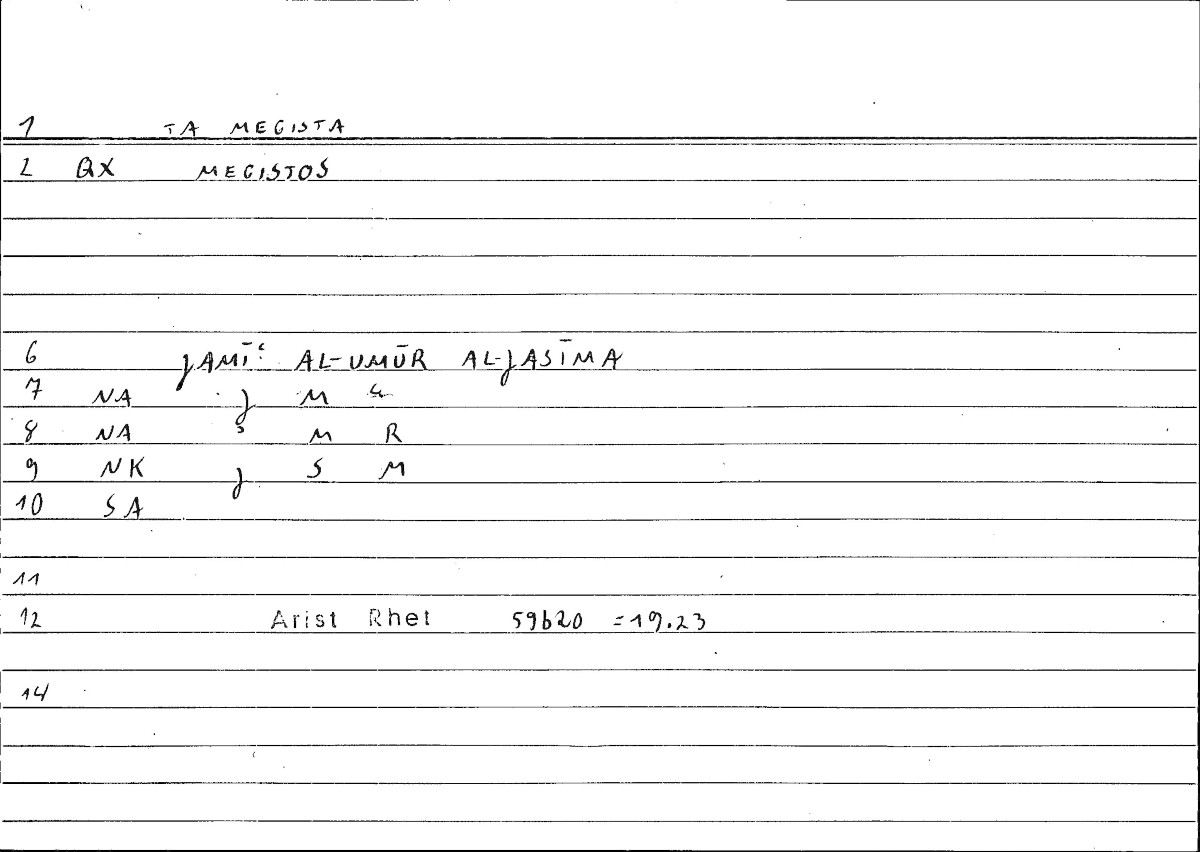 1 TA MEGISTA
2 QX MEGISTOS
6 JAMĪʿ AL-UMŪR AL-JASĪMA
7 NA J M ʿ
8 NA ʾ M R
9 NK J S M
10 SA
11
12 Arist Rhet 59b20 =19.23
14